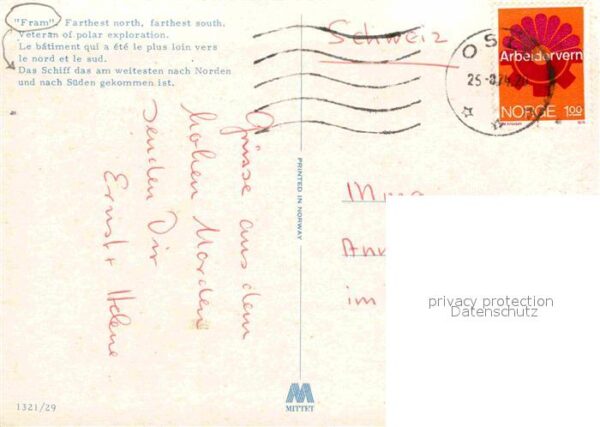 "Fram" Farthest north, farthest south.
Veteran of polar exploration.
Le bâtiment qui a été le plus loin vers
le nord et le sud.
Das Schiff das am weitesten nach Norden
und nach Süden gekommen ist.
Schweiz
OSLO
Arbeidervern
NORGE 100
Grüsse aus dem
hohen Norden
senden Dir
Ernst + Helene
PRINTED IN NORWAY
im
privacy protection
Datenschutz
MITTET
1321/29